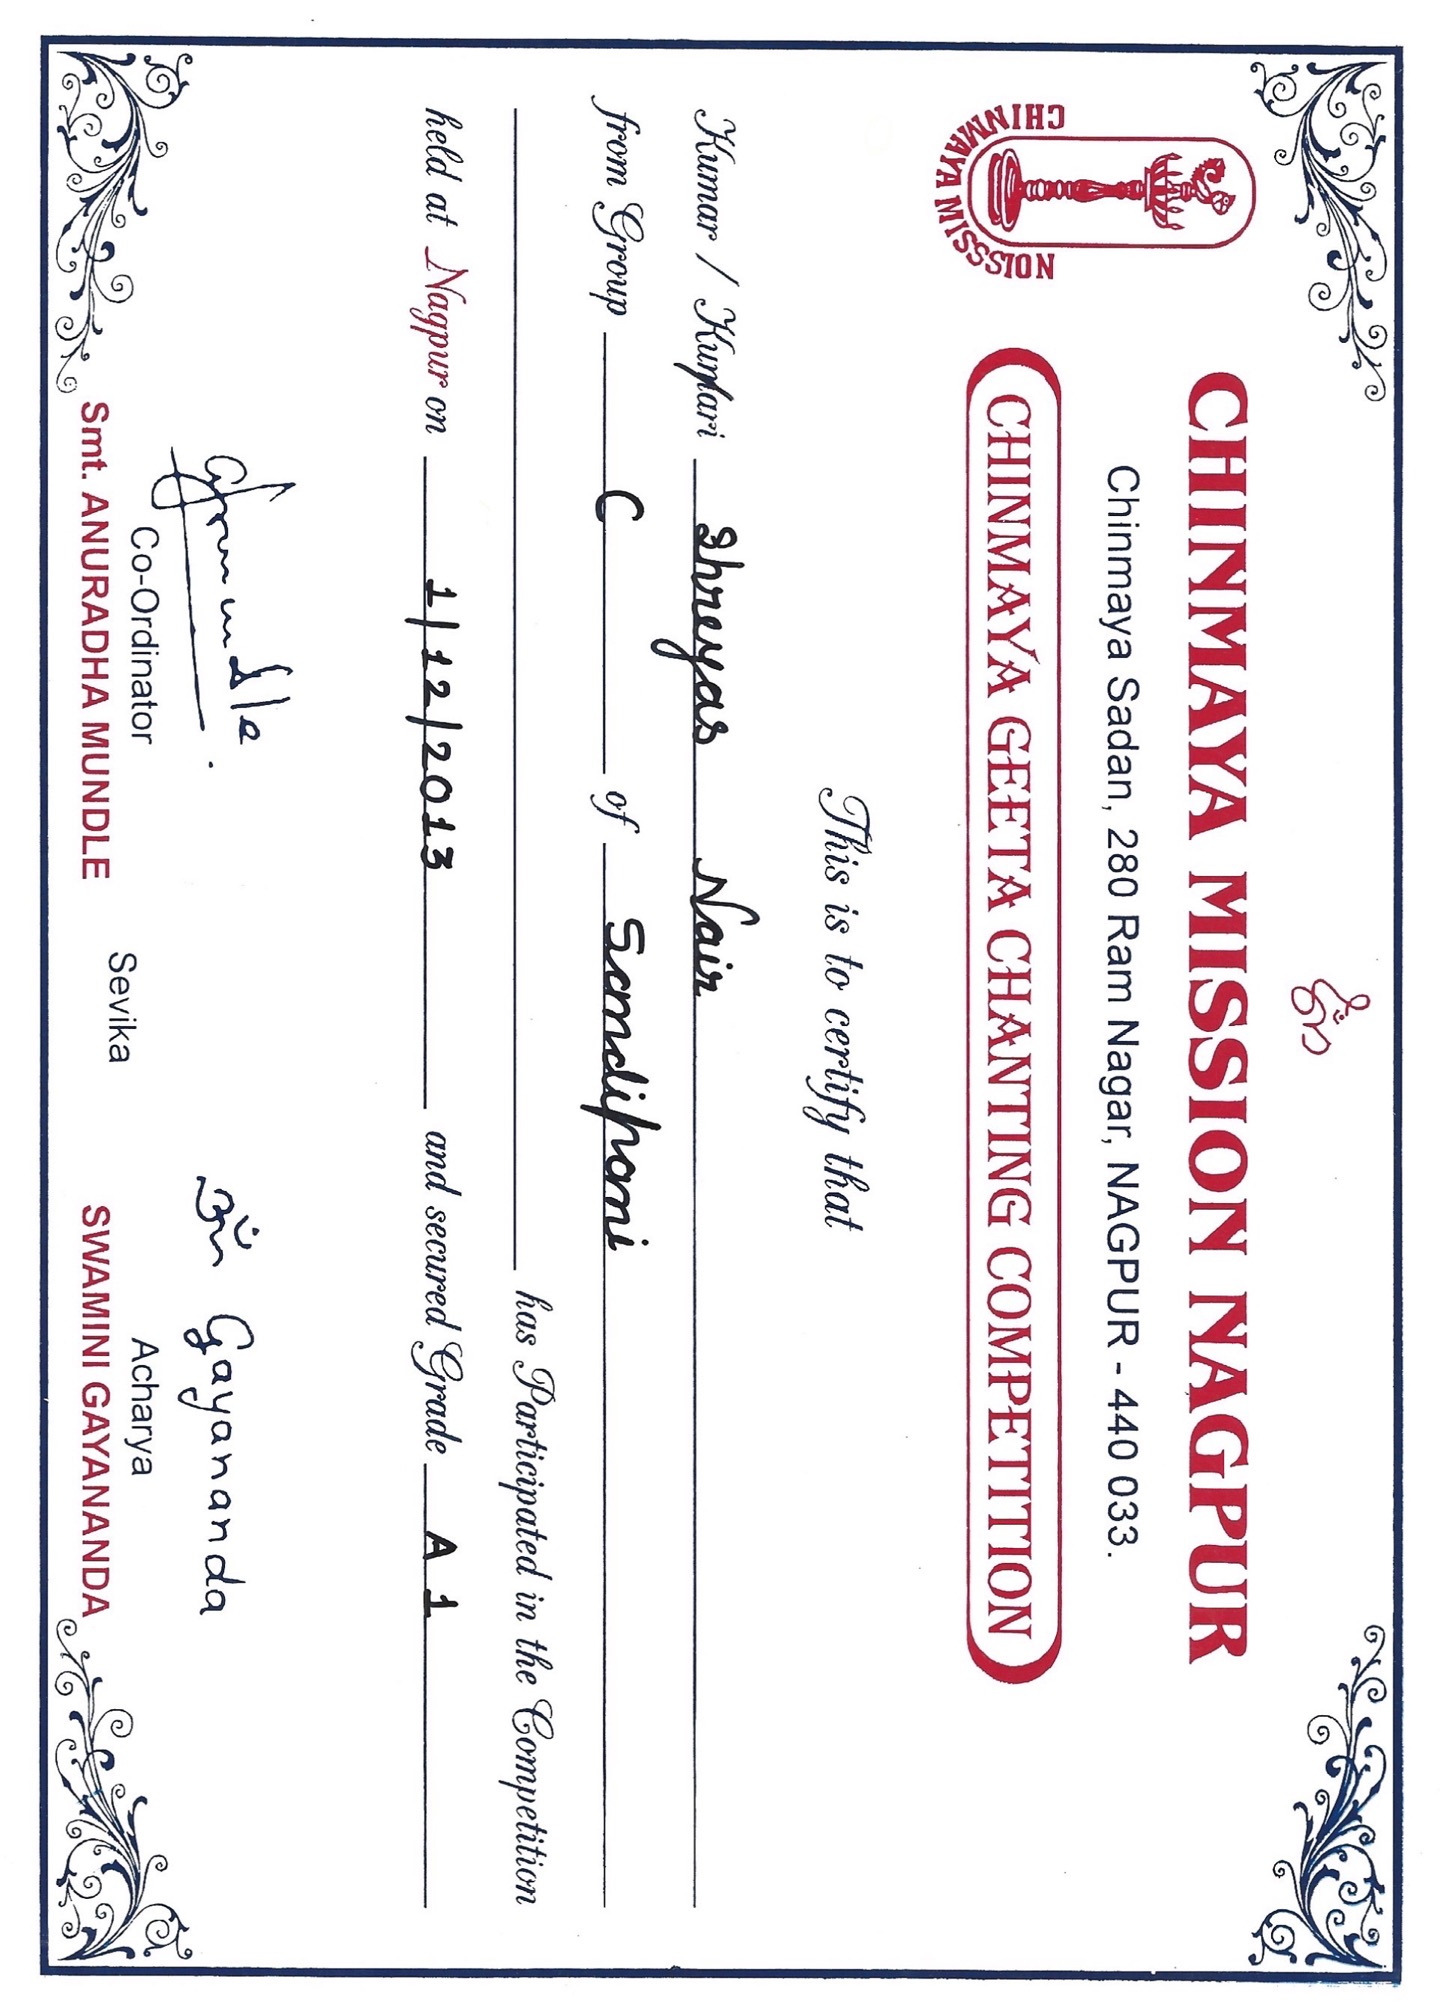 CHINMAYA MISSION NAGPUR
Chinmaya Sadan, 280 Ram Nagar, NAGPUR - 440 033.
CHINMAYA MISSSION
CHINMAYA GEETA CHANTING COMPETITION
This is to certify that
Kumar / Kumari Shreyas Nair
from Group C of Sandipani
has Participated in the Competition
held at Nagpur on 1/12/2013 and secured Grade A 1
ॐ Gayananda
Co-Ordinator Sevika Acharya
Smt. ANURADHA MUNDLE SWAMINI GAYANANDA